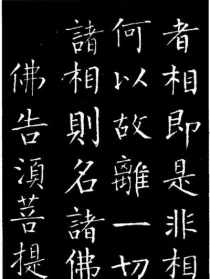 者相即是非相
何以故離一切
諸相則名諸佛
佛告須菩提